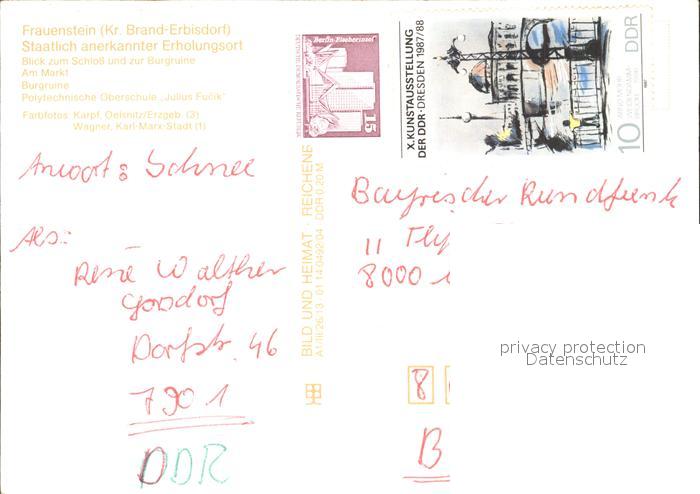 Frauenstein (Kr. Brand-Erbisdorf)
Staatlich anerkannter Erholungsort
Blick zum Schloß und zur Burgruine
Am Markt
Burgruine
Polytechnische Oberschule „Julius Fučik"
Farbfotos Karpf, Oelsnitz/Erzgeb. (3)
Wagner, Karl-Marx-Stadt (1)
Berlin-Fischerinsel
15
X. KUNSTAUSSTELLUNG
DER DDR · DRESDEN 1987/88
10
DDR
Anwort: Schnee
Abs:
René Walther
Gorsdorf
Dorfstr. 46
7901
DDR
BILD UND HEIMAT · REICHENB
A1/III/26/13 01 14 0492/04 DDR 0,20 M
Bayrischer Rundfunk
11
8000
8
B
privacy protection
Datenschutz